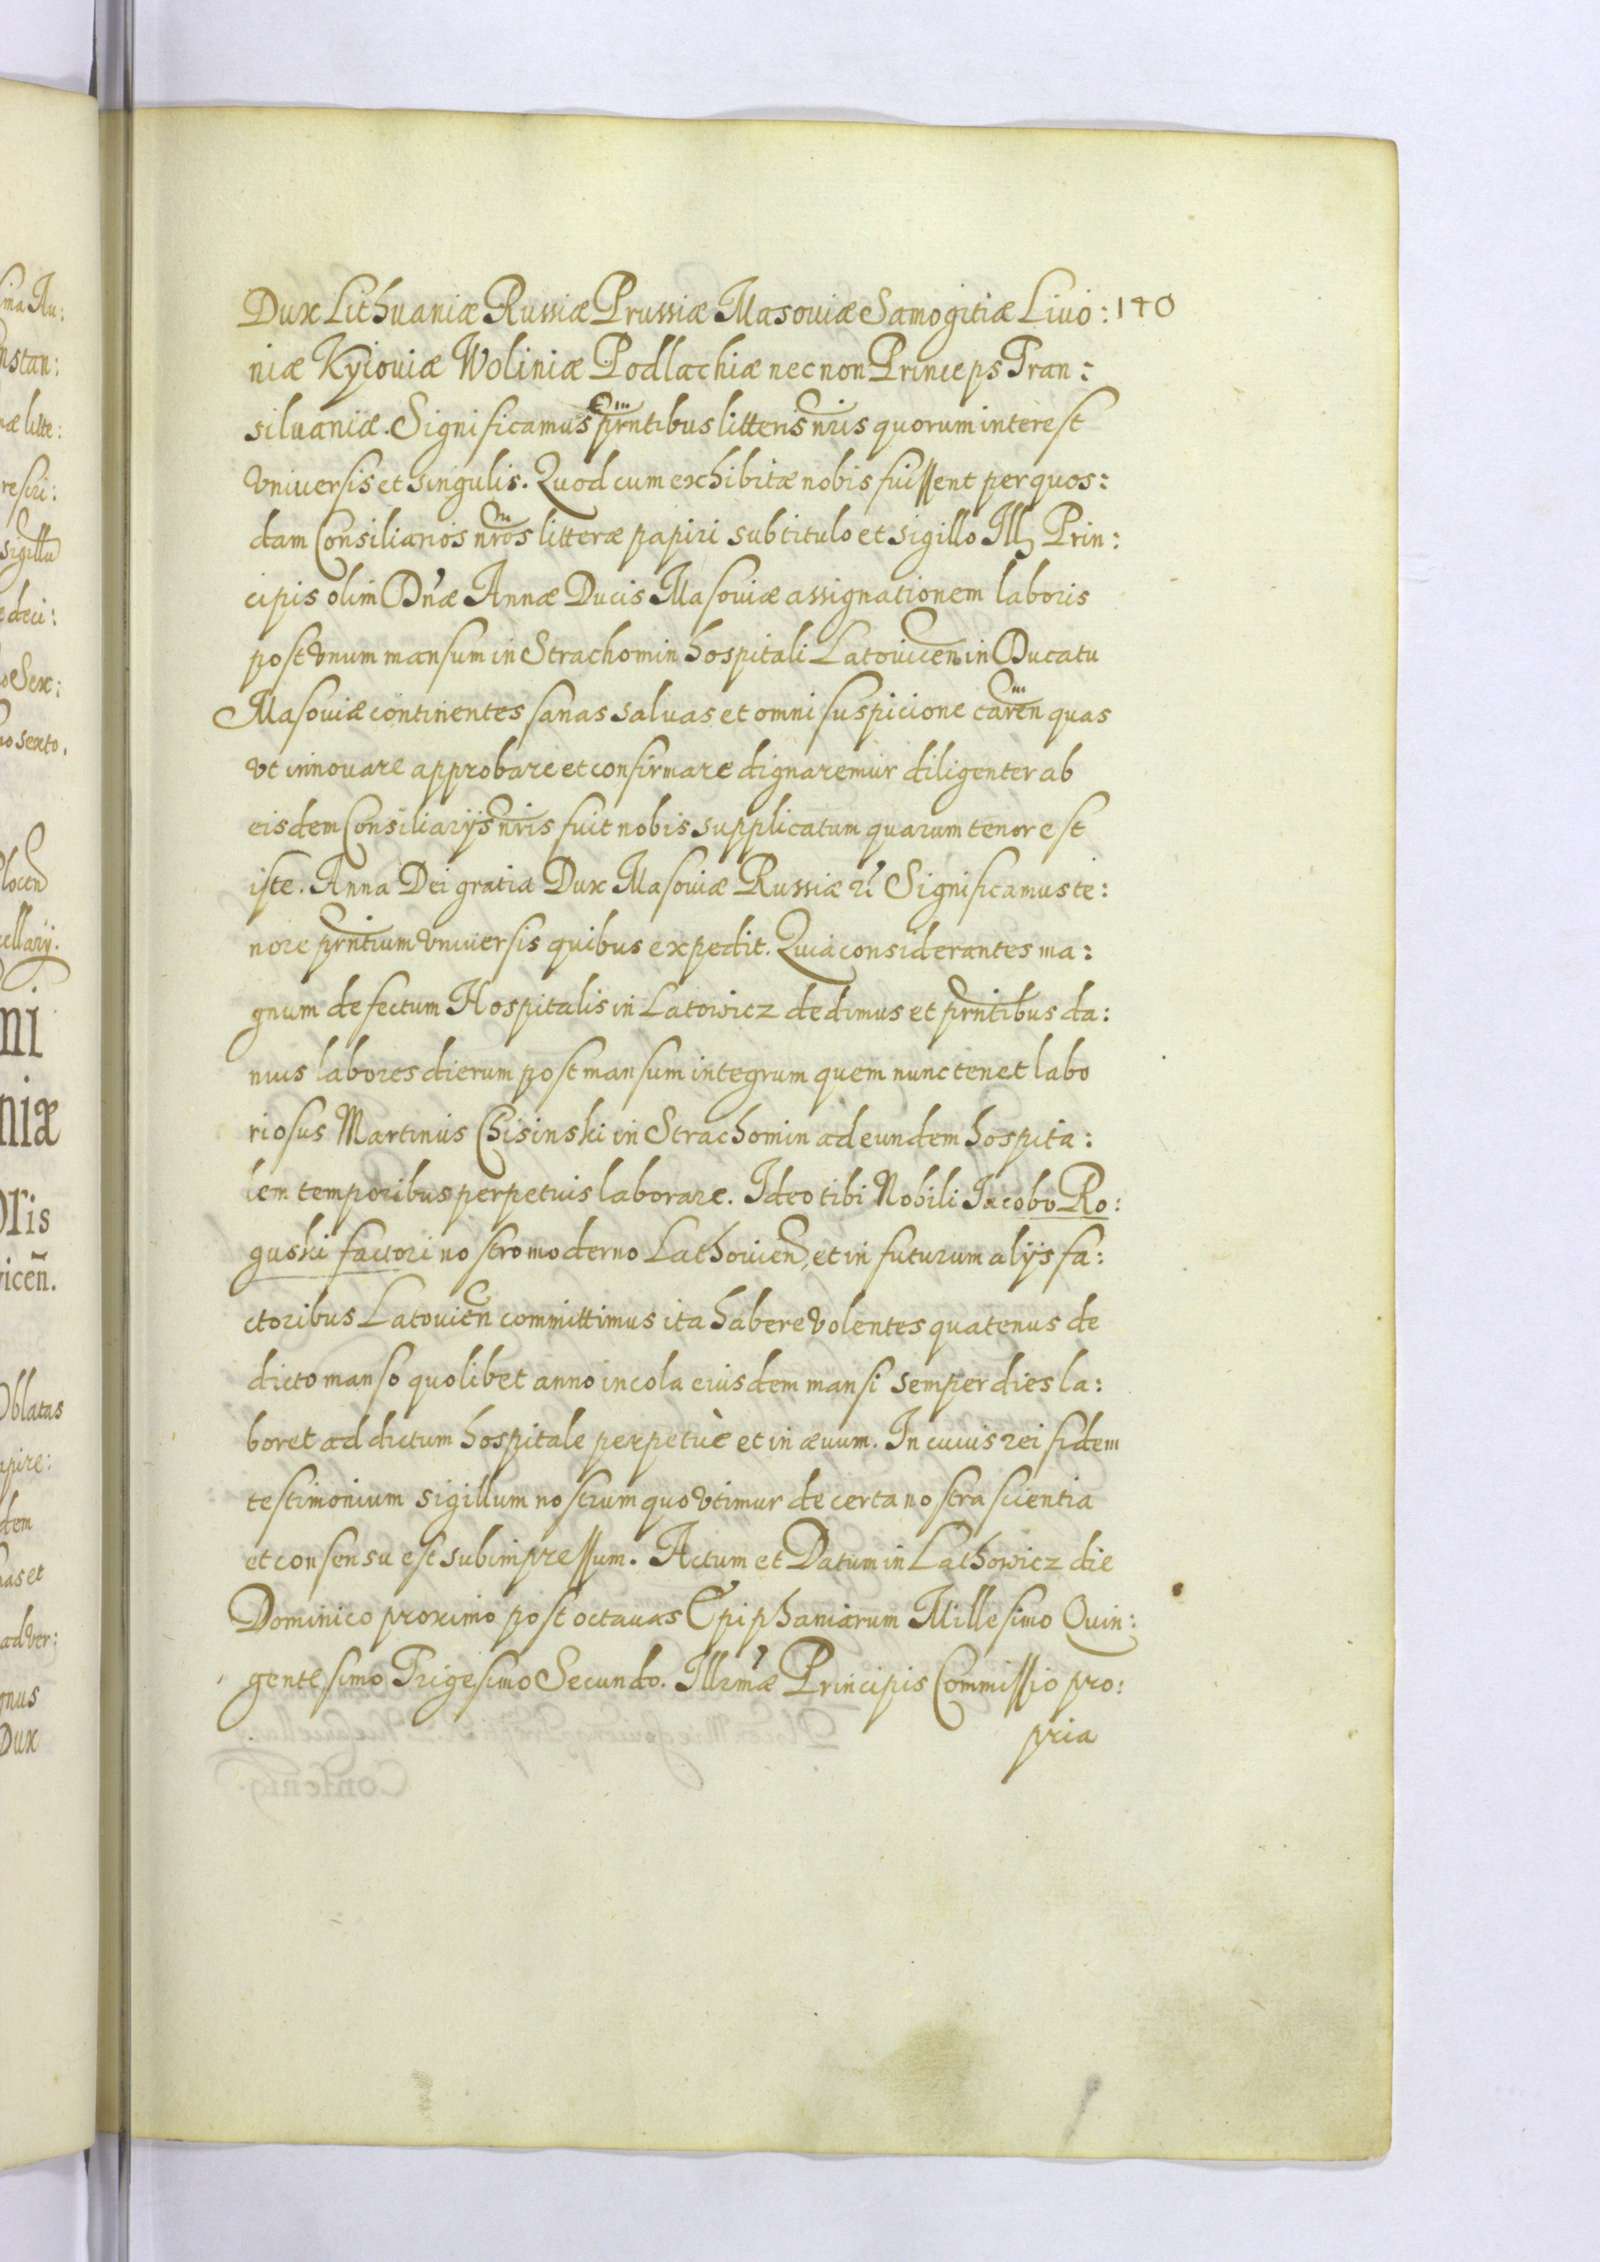 Dux Lithuaniæ Russiæ Prussiæ Masouiæ Samogitiæ Liuo: 140
niæ Kyiouiæ Woliniæ Podlachiæ nec non Princeps Tran:
siluaniæ. Significamus prntibus litteris nris quorum interest
vniuersis et singulis. Quod cum exhibitæ nobis fuissent per quos:
dam Consiliarios nros litteræ papiri sub titulo et sigillo Ill Prin:
cipis olim Dnæ Annæ Ducis Masouiæ assignationem laboris
post vnum mansum in Strachomin hospitali Latouicen in Ducatu
Masouiæ continentes sanas saluas et omni suspicione caren quas
vt innouare approbare et confirmare dignaremur diligenter ab
eisdem Consiliarijs nris fuit nobis supplicatum quarum tenor est
iste. Anna Dei gratia Dux Masouiæ Russiæ zc Significamus te:
nore prntium vniuersis quibus expedit. Quia considerantes ma:
gnum defectum Hospitalis in Latowicz dedimus et prntibus da:
mus labores dierum post mansum integrum quem nunc tenet labo
riosus Martinus Chisinski in Strachomin ad eundem hospita:
lem temporibus perpetuis laborare. Ideo tibi Nobili Jacobo Ro:
guski factori nostro moderno Lathouien et in futurum alijs fa:
ctoribus Latouien committimus ita habere volentes quatenus de
dicto manso quolibet anno incola eiusdem mansi semper dies la:
boret ad dictum hospitale perpetuè et in æuum. In cuius rei fidem
testimonium sigillum nostrum quo vtimur de certa nostra scientia
et consensu est subimpressum. Actum et Datum in Lathowicz die
Dominico proximo post octauas Epiphaniarum Millesimo Quin:
gentesimo Trigesimo Secundo. Illrmæ Principis Commissio pro:
pria